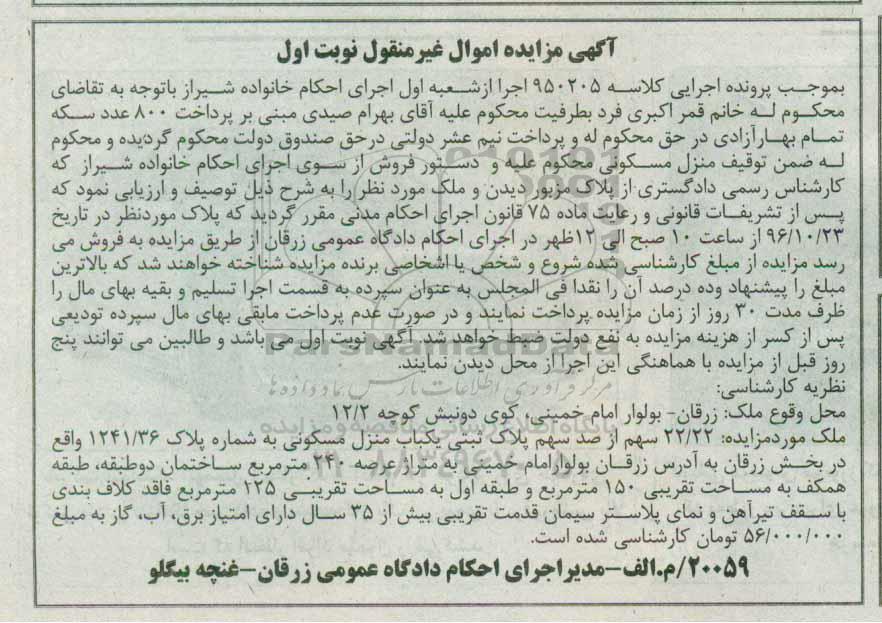 آگهی مزایده اموال غیرمنقول نوبت اول
بموجب پرونده اجرایی کلاسه ۹۵۰۲۰۵ اجرا ازشعبه اول اجرای احکام خانواده شیراز باتوجه به تقاضای
محکوم له خانم قمر اکبری فرد بطرفیت محکوم علیه آقای بهرام صیدی مبنی بر پرداخت ۸۰۰ عدد سکه
تمام بهارآزادی در حق محکوم له و پرداخت نیم عشر دولتی درحق صندوق دولت محکوم گردیده و محکوم
له ضمن توقیف منزل مسکونی محکوم علیه و دستور فروش از سوی اجرای احکام خانواده شیراز که
کارشناس رسمی دادگستری از پلاک مزبور دیدن و ملک مورد نظر را به شرح ذیل توصیف و ارزیابی نمود که
پس از تشریفات قانونی و رعایت ماده ۷۵ قانون اجرای احکام مدنی مقرر گردید که پلاک موردنظر در تاریخ
۹۶/۱۰/۲۳ از ساعت ۱۰ صبح الی ۱۲ظهر در اجرای احکام دادگاه عمومی زرقان از طریق مزایده به فروش می
رسد مزایده از مبلغ کارشناسی شده شروع و شخص یا اشخاصی برنده مزایده شناخته خواهند شد که بالاترین
مبلغ را پیشنهاد وده درصد آن را نقدا فی المجلس به عنوان سپرده به قسمت اجرا تسلیم و بقیه بهای مال را
ظرف مدت ۳۰ روز از زمان مزایده پرداخت نمایند و در صورت عدم پرداخت مابقی بهای مال سپرده تودیعی
پس از کسر از هزینه مزایده به نفع دولت ضبط خواهد شد. آگهی نوبت اول می باشد و طالبین می توانند پنج
روز قبل از مزایده با هماهنگی این اجرا از محل دیدن نمایند.
نظریه کارشناسی:
محل وقوع ملک: زرقان- بولوار امام خمینی، کوی دونبش کوچه ۱۲/۲
ملک موردمزایده: ۲۲/۲۲ سهم از صد سهم پلاک ثبتی یکباب منزل مسکونی به شماره پلاک ۱۲۴۱/۳۶ واقع
در بخش زرقان به آدرس زرقان بولوارامام خمینی به متراژ عرصه ۲۴۰ مترمربع ساختمان دوطبقه، طبقه
همکف به مساحت تقریبی ۱۵۰ مترمربع و طبقه اول به مساحت تقریبی ۱۲۵ مترمربع فاقد کلاف بندی
با سقف تیرآهن و نمای پلاستر سیمان قدمت تقریبی بیش از ۳۵ سال دارای امتیاز برق، آب، گاز به مبلغ
۵۶/۰۰۰/۰۰۰ تومان کارشناسی شده است.
۲۰۰۵۹/م.الف-مدیراجرای احکام دادگاه عمومی زرقان-غنچه بیگلو
ParsNamadData
مرکز فرآوری اطلاعات پارس نماد داده ها
پایگاه اطلاع رسانی مناقصه و مزایده